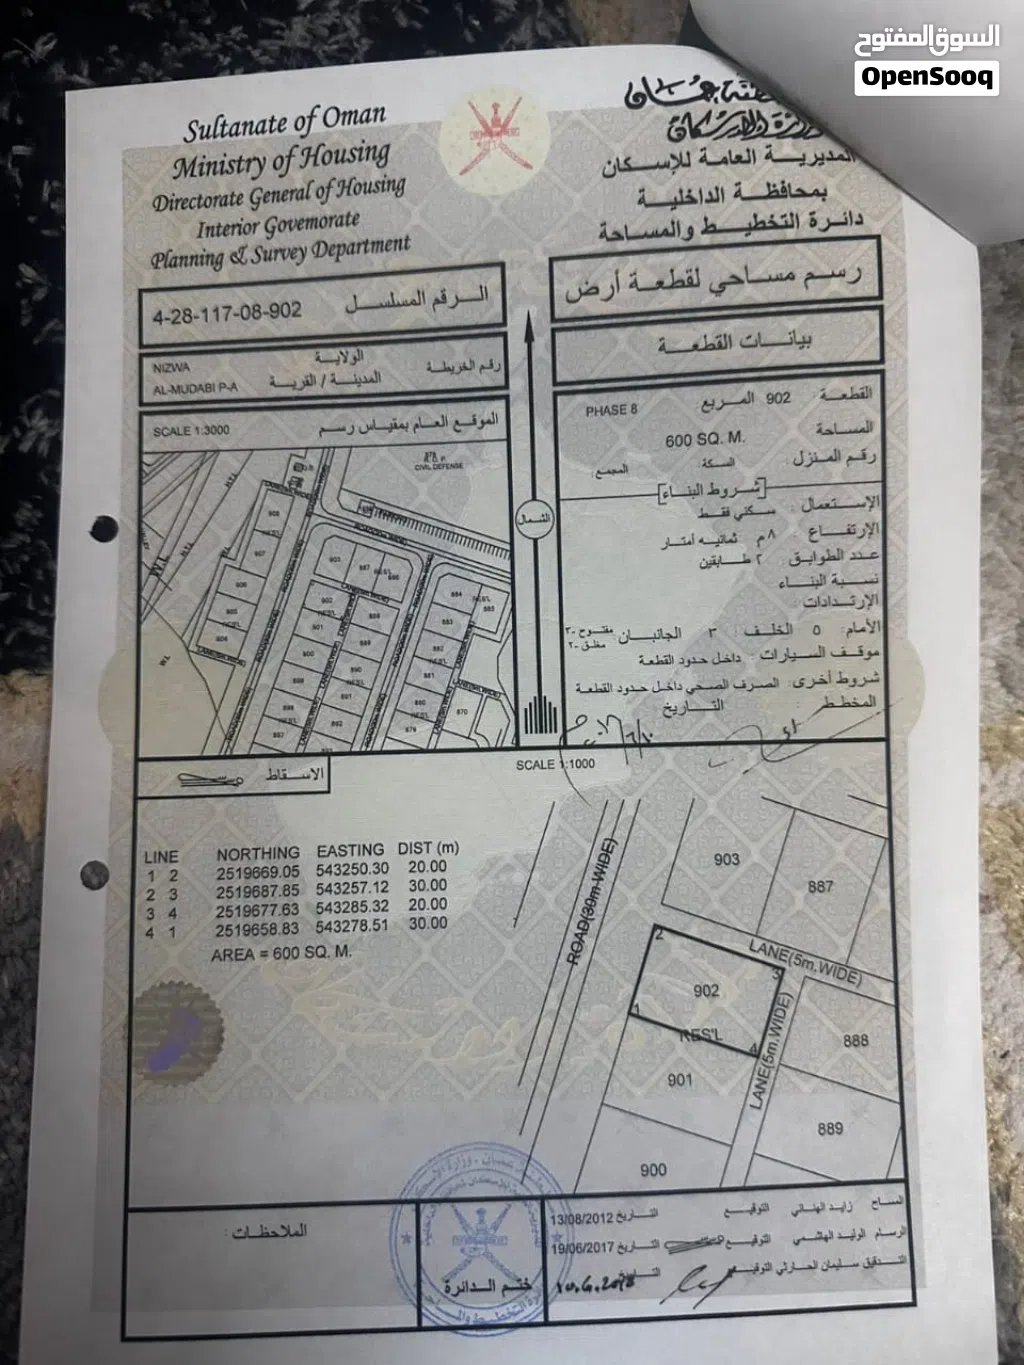 السوق المفتوح
OpenSooq
Sultanate of Oman
Ministry of Housing
Directorate General of Housing
Interior Govemorate
Planning & Survey Department
المديرية العامة للإسكان
بمحافظة الداخلية
دائرة التخطيط والمساحة
الرقم المسلسل 4-28-117-08-902
رسم مساحي لقطعة أرض
بيانات القطعة
رقم الخريطة الولاية NIZWA
المدينة / القرية AL-MUDABI P-A
الموقع العام بمقياس رسم SCALE 1:3000
القطعة: 902 المربع PHASE 8
المساحة 600 SQ. M.
رقم المنزل: السكة المجمع:
[شروط البناء]
الإستعمال: سكني فقط
الإرتفاع: ٨م ثمانيه أمتار
عدد الطوابق: ٢ طابقين
نسبة البناء
الإرتدادات:
الأمام: ٥ الخلف ٣ الجانبان مفتوح-٣ مغلق-٢
موقف السيارات: داخل حدود القطعة
شروط أخرى: الصرف الصحي داخل حدود القطعة
المخطط: التاريخ
الشمال
CIVIL DEFENSE
SCALE 1:1000
الاسقاط
LINE NORTHING EASTING DIST (m)
1 2 2519669.05 543250.30 20.00
2 3 2519687.85 543257.12 30.00
3 4 2519677.63 543285.32 20.00
4 1 2519658.83 543278.51 30.00
AREA = 600 SQ. M.
ROAD(30m WIDE)
903
887
LANE(5m.WIDE)
2
3
902
1
RES'L
4
LANE(5m.WIDE)
888
901
889
900
الملاحظات:
ختم الدائرة
المساح زايد الهنائي التوقيع التاريخ 13/08/2012
الرسام الوليد الهاشمي التوقيع التاريخ 19/06/2017
التدقيق سليمان الحارثي التوقيع التاريخ